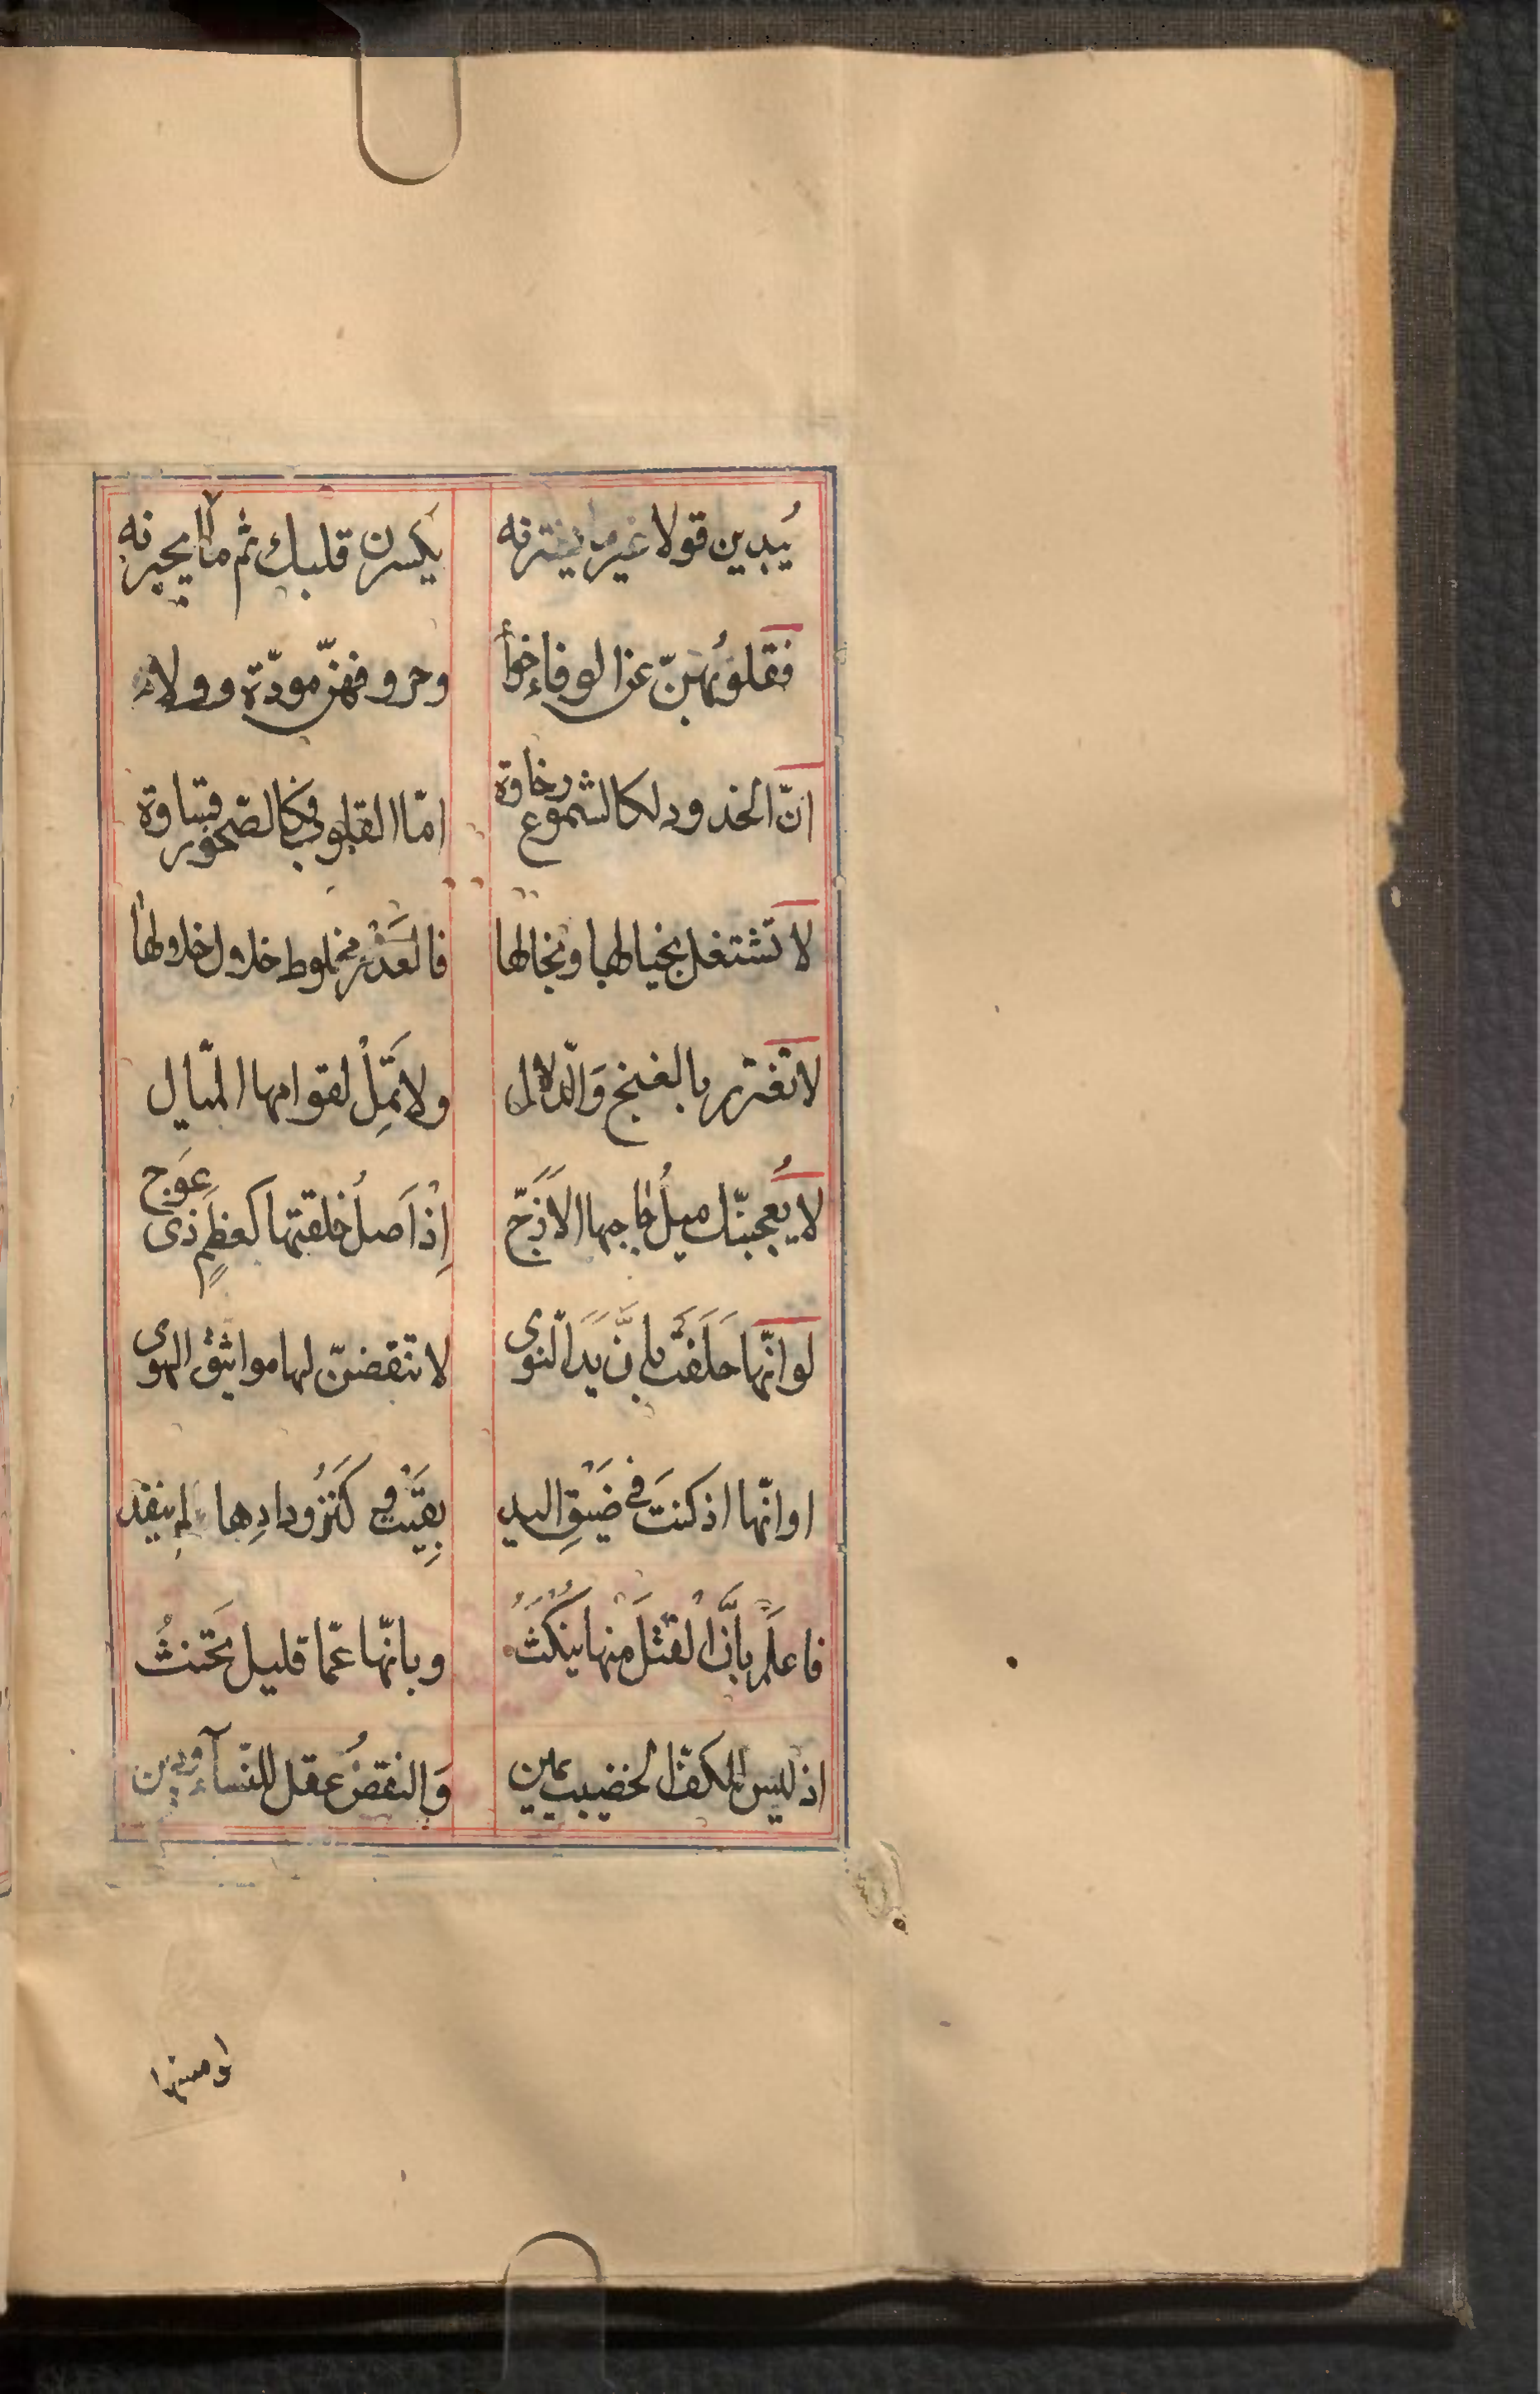 يُبدين قولا غير ما يفترنه يكسرن قلبك ثم لا يجبرنه
فقلوبُهنّ عن الوفاء خوأ وحروفهنّ مودّة وولاء
انّ الخدود لكالشموع رخاوة امّا القلوب فكالصّخور قساوة
لا تشتغل بخيالها وبخالها فالغَدْر مخلوط خلال خلالها
لا تغترر بالغنج وَالدّلال ولا تَمِلْ لقوامها الميّال
لا يُعجبنّك ميلُ حاجبها الازَجّ إِذْ اَصلُ خلقتها كَعظمٍ ذى عِوَج
لو انّها حَلَفَتْ بِاَنَّ يَدَ النّوى لا تنقضنّ لها مواثيق الهوى
او انّها اذ كنتَ فى ضَيْقِ اليد بِقيَتْ وَ كَنْزُ ودادِها لم ينفد
فاعلَم بِاَنَّ الْفتلَ منها يُنْكَثُ وبانّها عمّا قليل تَحنثُ
اذ ليس للكفّ الخضيب يمين وَالنقصُ عقل للنّسآء ودين
او منها